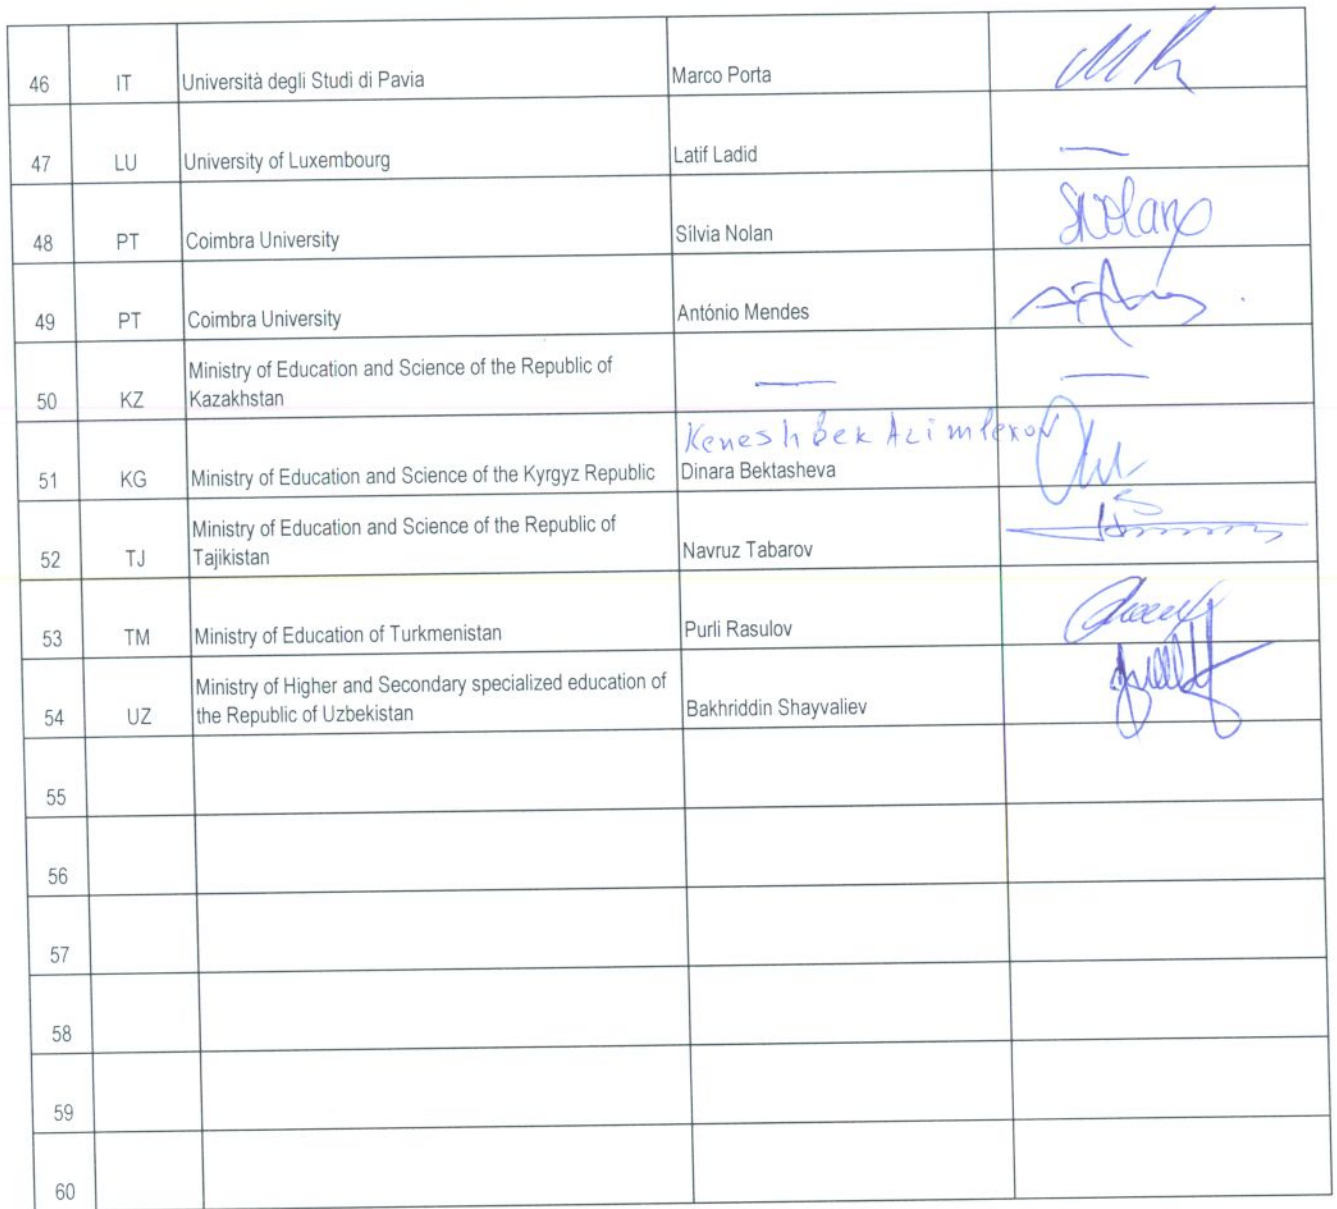 46 IT Università degli Studi di Pavia Marco Porta
47 LU University of Luxembourg Latif Ladid —
48 PT Coimbra University Sílvia Nolan SNolan
49 PT Coimbra University António Mendes
Ministry of Education and Science of the Republic of
50 KZ Kazakhstan — —
Keneshbek
51 KG Ministry of Education and Science of the Kyrgyz Republic Dinara Bektasheva
Ministry of Education and Science of the Republic of
52 TJ Tajikistan Navruz Tabarov
53 TM Ministry of Education of Turkmenistan Purli Rasulov
Ministry of Higher and Secondary specialized education of
54 UZ the Republic of Uzbekistan Bakhriddin Shayvaliev
55
56
57
58
59
60